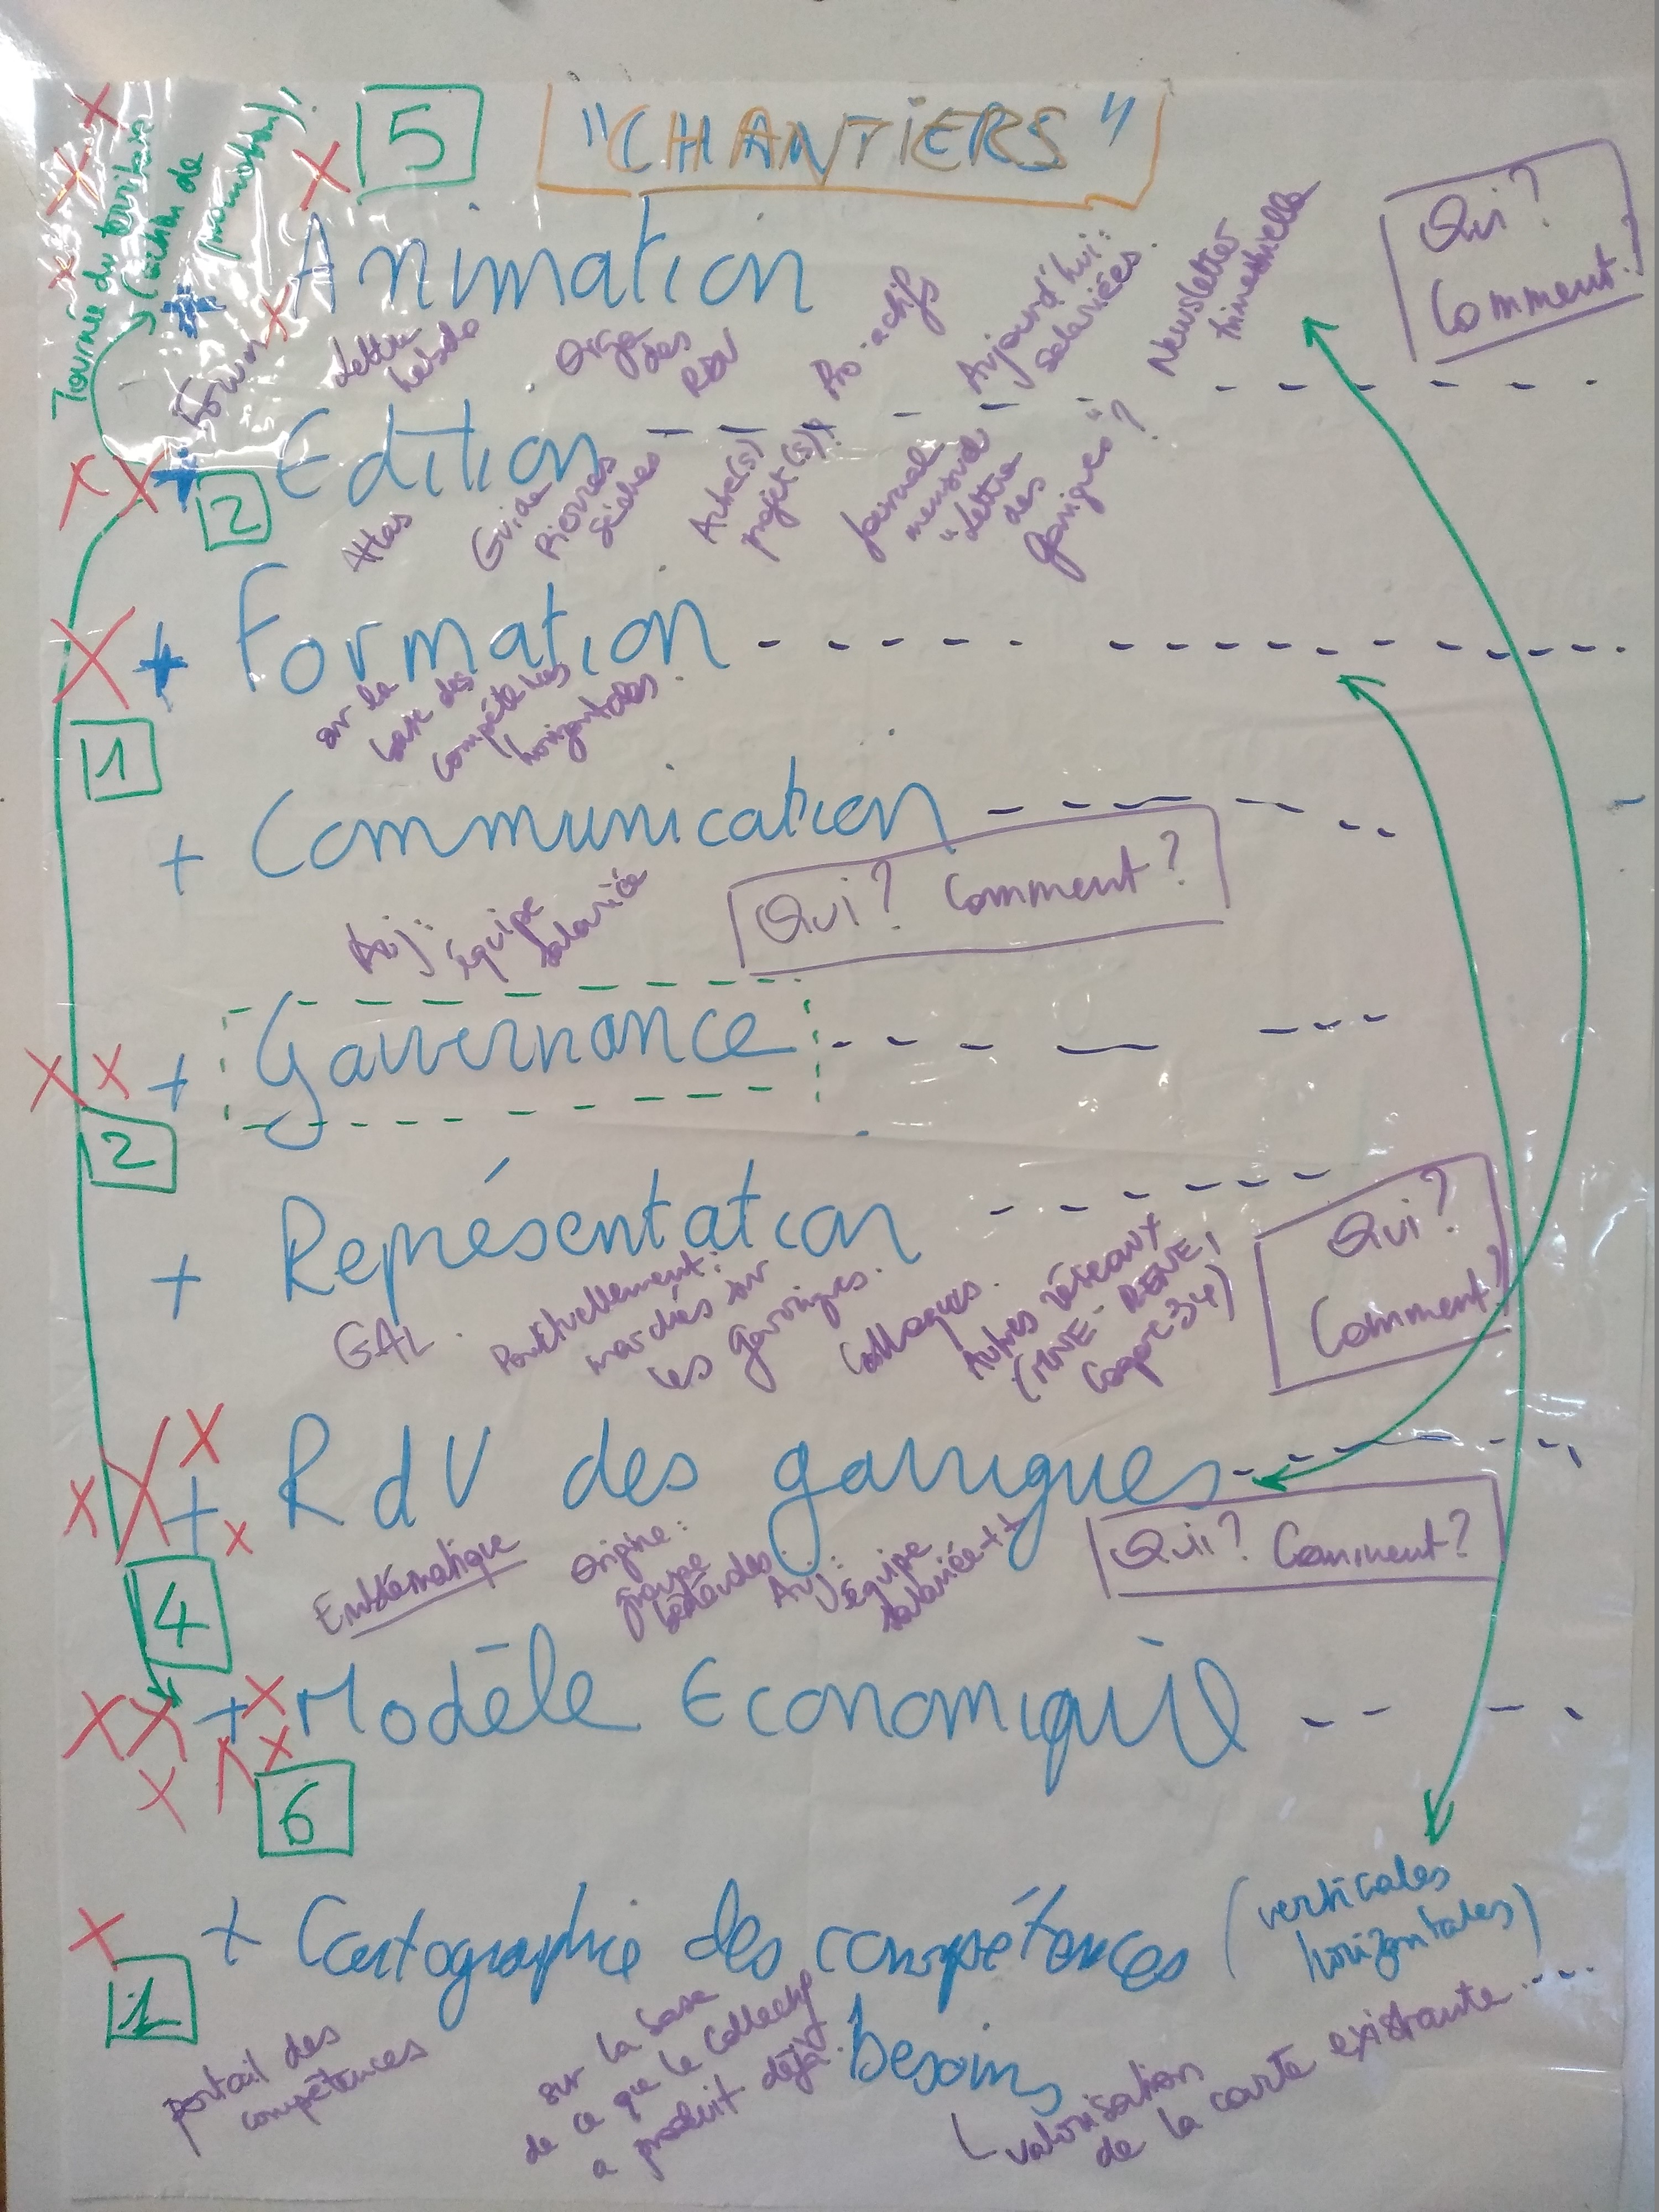 5 "CHANTIERS"
Tournée du territoire
(action de
promotion)!
Qui?
Comment?
Animation
Forum
Lettre
hebdo
Orga
des
RDV
Pro-actifs
Aujourd'hui:
salariées.
Newsletter
trimestrielle
+ Edition
2
Atlas
Guide
Pierres
sèches
Autre(s)
projet(s)?
Journal
mensuel
"Lettre
des
garrigues"?
+ Formation
1
sur la
base des
compétences
horizontales.
+ Communication
Auj:
équipe
salariée
Qui? Comment?
+ Gouvernance
2
+ Représentation
GAL.
Ponctuellement:
marchés sur
les garrigues.
Colloques.
Autres réseaux
Coopere 34)
Qui?
Comment?
+ RdV des garrigues
4
Emblématique
Origine:
groupe
bénévoles.
Auj:
équipe
salariée++
Qui? Comment?
+ Modèle Economique
6
+ Cartographie des compétences (verticales
horizontales)
1
besoins
portail des
compétences
sur la base
de ce que le Collectif
a produit déjà.
valorisation
de la carte existante....